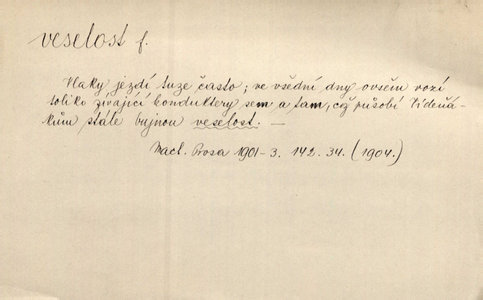 veselost f.
Vlaky jezdí tuze často; ve všední dny ovšem vozí
toliko zívající konduktery sem a tam, což působí Vídeňá-
kům stále bujnou veselost. —
Mach. Prosa 1901-3. 142. 34. (1904.)